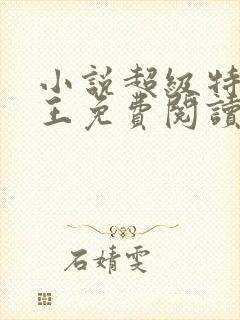 小說超級特
王免費閱讀
石婧雯